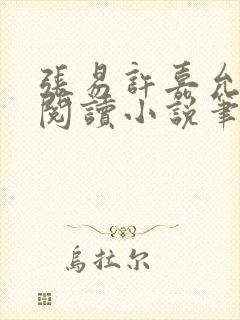 張易許嘉允
閱讀小說筆
烏拉尔